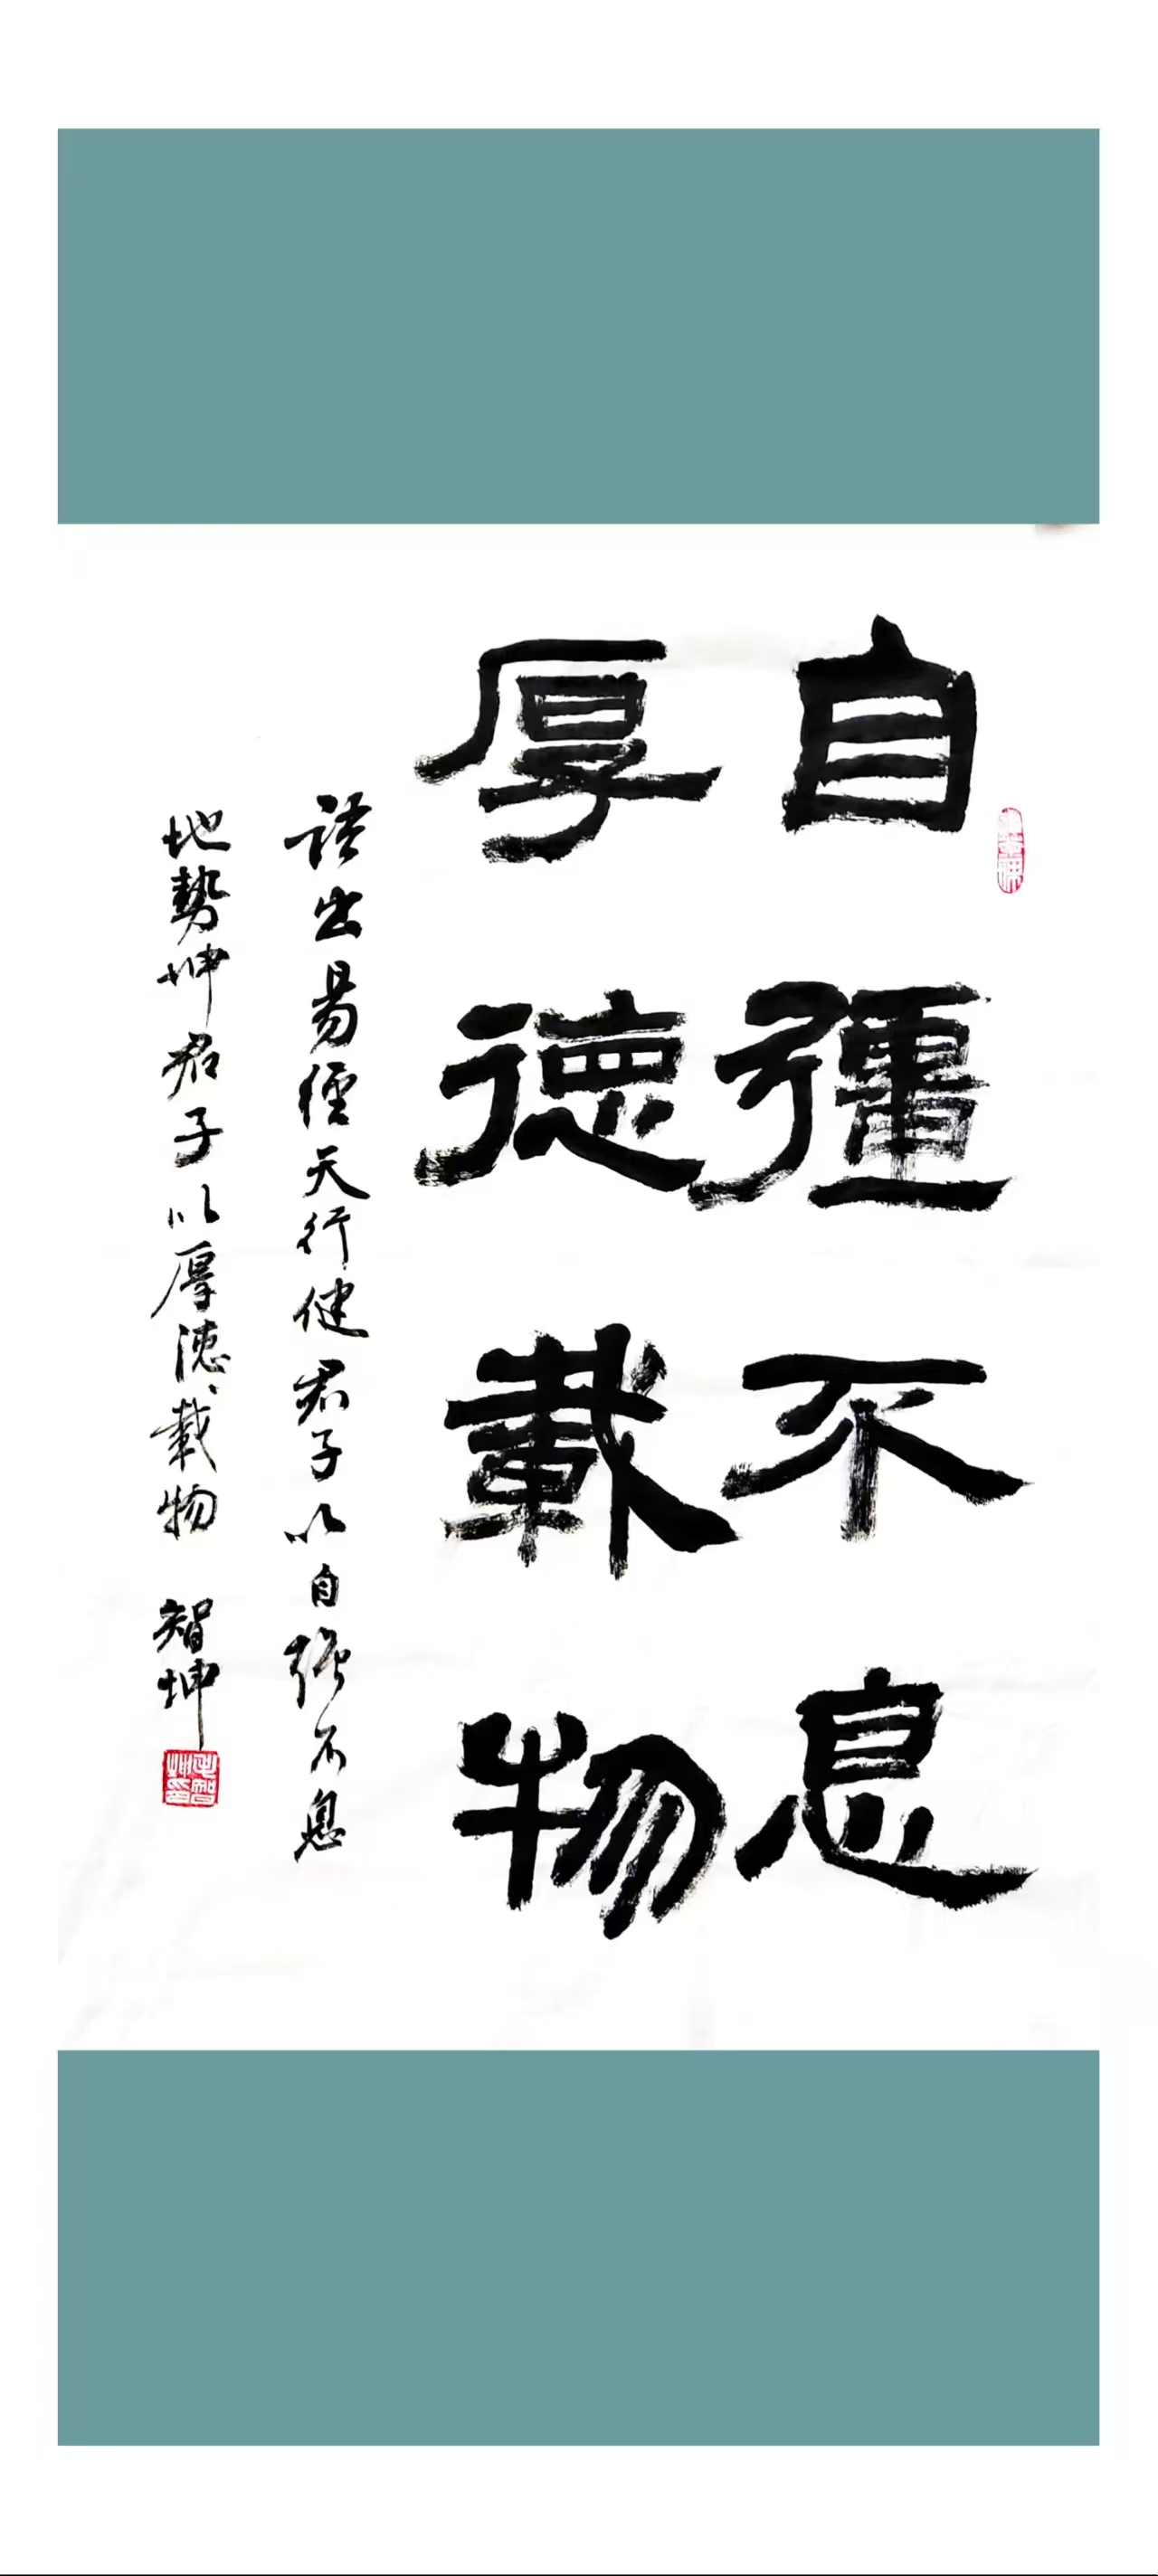 自彊不息
厚德載物
語出易經天行健君子以自強不息
地勢坤君子以厚德載物
智坤